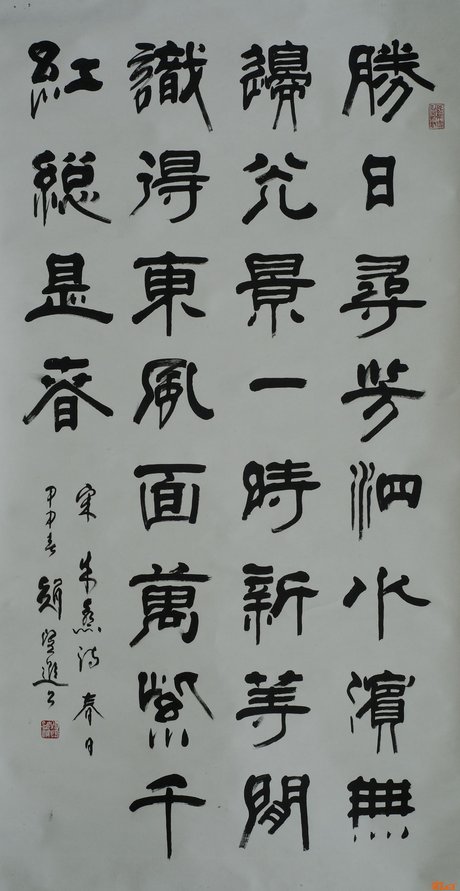 勝日尋芳泗水濱無
邊光景一時新等閒
識得東風面萬紫千
紅總是春
宋朱熹詩春日
甲申春趙望進